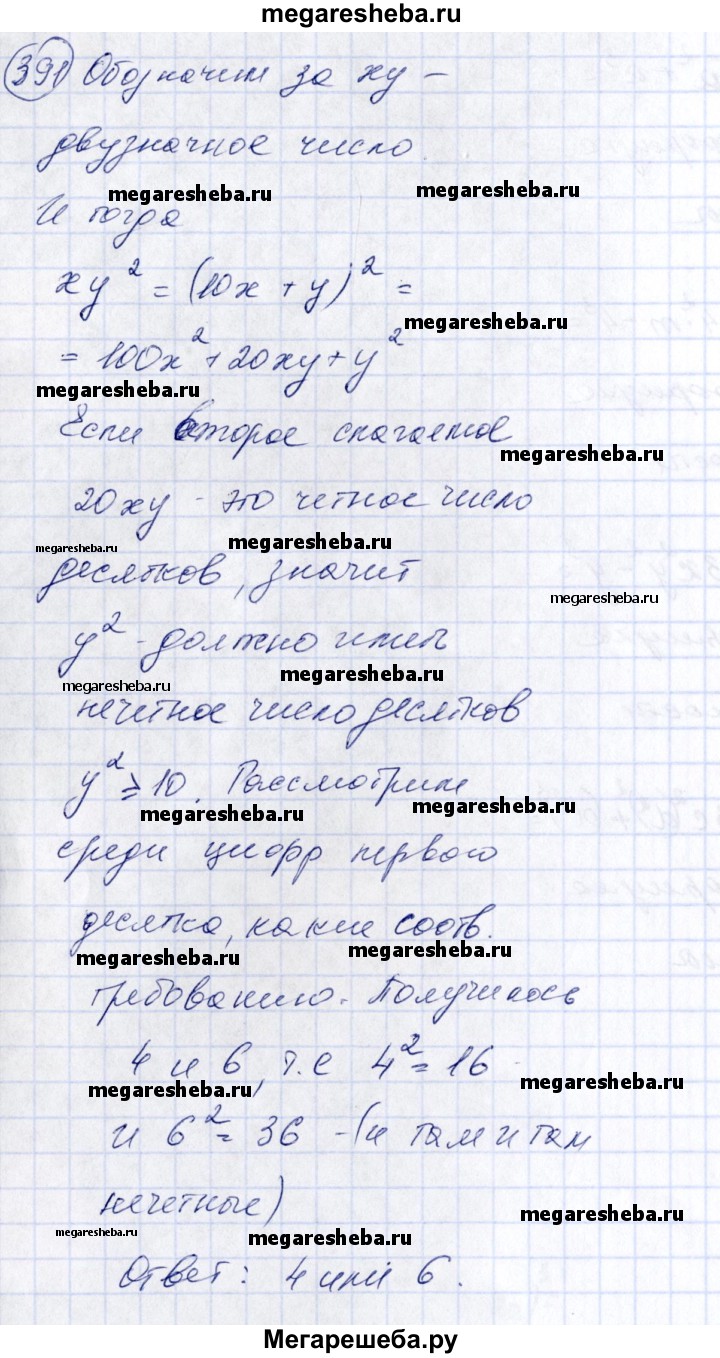 megaresheba.ru
391 Обозначим за xy –
двузначное число
megaresheba.ru
megaresheba.ru
И тогда
xy² = (10x + y)² =
megaresheba.ru
= 100x² + 20xy + y²
megaresheba.ru
Если второе слагаемое
megaresheba.ru
20xy - это четное число
megaresheba.ru
megaresheba.ru
десятков, значит
megaresheba.ru
y² - должно иметь
megaresheba.ru
megaresheba.ru
нечетное число десятков
y² ≥ 10. Рассмотрим
megaresheba.ru
megaresheba.ru
среди цифр первого
десятка, какие соотв.
megaresheba.ru
megaresheba.ru
требованию. Получилось
4 и 6, т.е 4² = 16
megaresheba.ru
megaresheba.ru
и 6² = 36 - (и там и там
нечетные)
megaresheba.ru
megaresheba.ru
megaresheba.ru
Ответ: 4 или 6.
Мегарешеба.ру